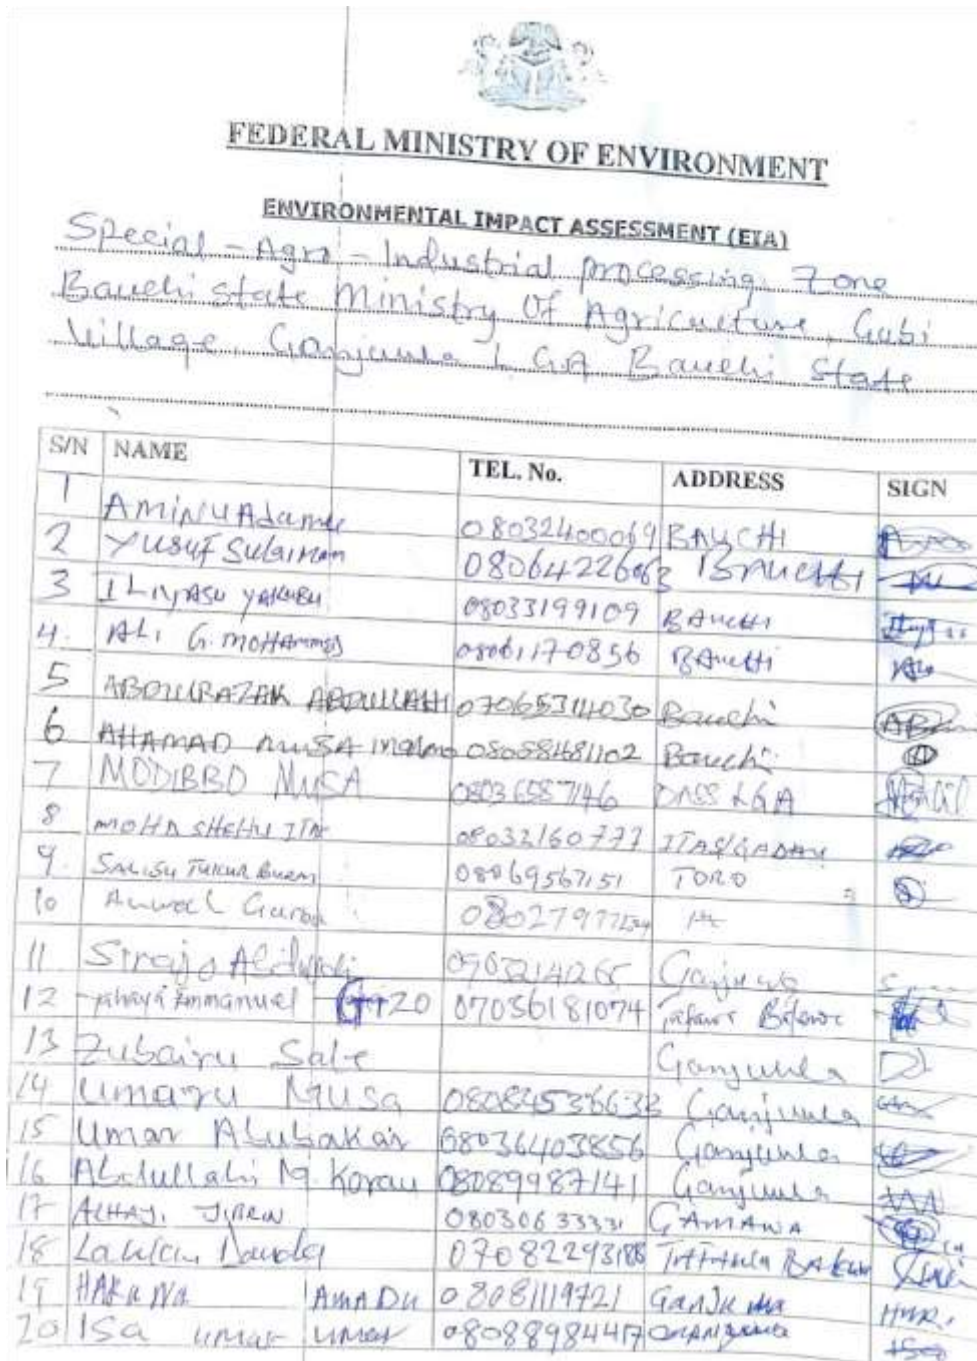 FEDERAL MINISTRY OF ENVIRONMENT
ENVIRONMENTAL IMPACT ASSESSMENT (EIA)
Special - Agro - Industrial processing Zone
Bauchi state Ministry Of Agriculture, Gubi
Village, Ganjuwa L.G.A Bauchi State
S/N NAME TEL. No. ADDRESS SIGN
1 AMINU Adamu 08032400069 BAUCHI
2 YUSUF Sulaiman BAUCHI
3 ILIYASU YAKUBU 08033199109 BAUCHI
4. ALI G. MOHAMMED 08061170856 BAUCHI
5 ABDULRAZAK ABDULLAHI 07065314030 Bauchi
6 AHAMAD MUSA 08058481102 Bauchi
7 MODIBBO MUSA 08036587146 DASS LGA
8 MOHD SHEHU ITA 08032160777 ITAS/GADAU
9. SALISU TUKUR 08069567151 TORO
10 Anwal Garba
11 Sirajo 0903214265 Ganjuwa
12 Yahaya Emmanuel 07036181074
13 Zubairu Sale Ganjuwa
14 Umaru Musa Ganjuwa
15 Umar Abubakar 08036403856 Ganjuwa
16 Abdullahi M. Korau 08089987141 Ganjuwa
17 ALHAJI 08030633331 GAMAWA
18 Dauda 07082293188
19 HAKUNA AMADU 08081119721 GANJUWA
20 ISa umar umar 08088984417